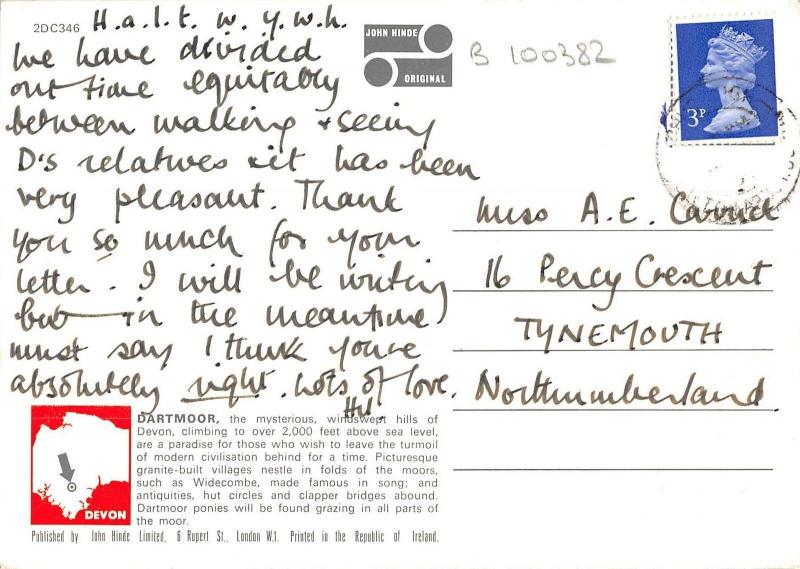 2DC346
H.a.l.t. w.y.w.h.
We have divided
our time equitably
between walking + seeing
D's relatives + it has been
very pleasant. Thank
you so much for your
letter. I will be writing
but in the meantime
must say I think you're
absolutely right. Lots of love.
JOHN HINDE
ORIGINAL
B 100382
3P
Miss A.E.
16 Percy Crescent
TYNEMOUTH
Northumberland.
DARTMOOR, the mysterious, windswept hills of
Devon, climbing to over 2,000 feet above sea level,
are a paradise for those who wish to leave the turmoil
of modern civilisation behind for a time. Picturesque
granite-built villages nestle in folds of the moors,
such as Widecombe, made famous in song; and
antiquities, hut circles and clapper bridges abound.
Dartmoor ponies will be found grazing in all parts of
the moor.
DEVON
Published by John Hinde Limited, 6 Rupert St., London W.1. Printed in the Republic of Ireland.